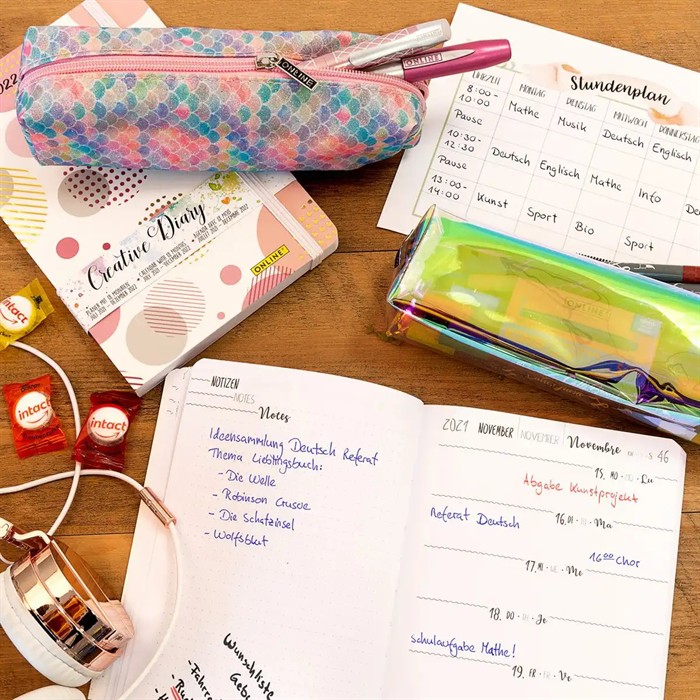 2022
ONLINE
ONLINE
Creative Diary
PLANER MIT 18 MONATEN
JULI 2021 – DEZEMBER 2022
CALENDAR WITH 18 MONTHS
JULY 2021 – DECEMBER 2022
ONLINE
Stundenplan
UHRZEIT MONTAG DIENSTAG MITTWOCH DONNERSTAG
8:00-10:00 Mathe Musik Deutsch Englisch
Pause
10:30-12:30 Deutsch Englisch Mathe Info
Pause
13:00-14:00 Kunst Sport Bio Sport
ONLINE
intact
intact
intact
NOTIZEN
NOTES
Notes
Ideensammlung Deutsch Referat
Thema Lieblingsbuch:
- Die Welle
- Robinson Crusoe
- Die Schatzinsel
- Wolfsblut
Wunschliste
2021 NOVEMBER NOVEMBER Novembre 46
15. MO Lu
Abgabe Kunstprojekt
16. DI Ma
Referat Deutsch
17. MI Me
16 00 Chor
18. DO Je
19. FR Ve
Schulaufgabe Mathe!